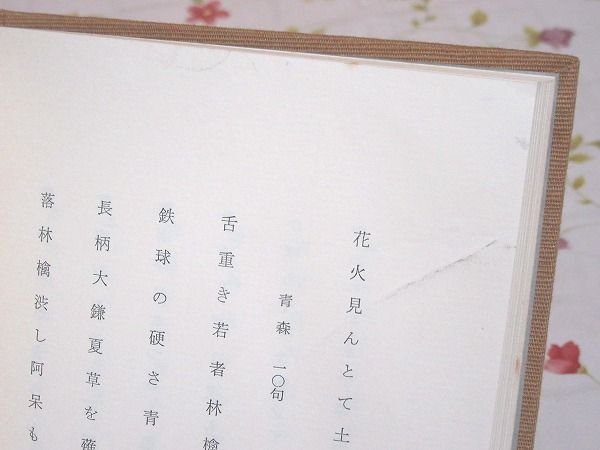 花火見んとて土
青森 一〇句
舌重き若者林檎
鉄球の硬さ青
長柄大鎌夏草を薙
落林檎渋し阿呆も